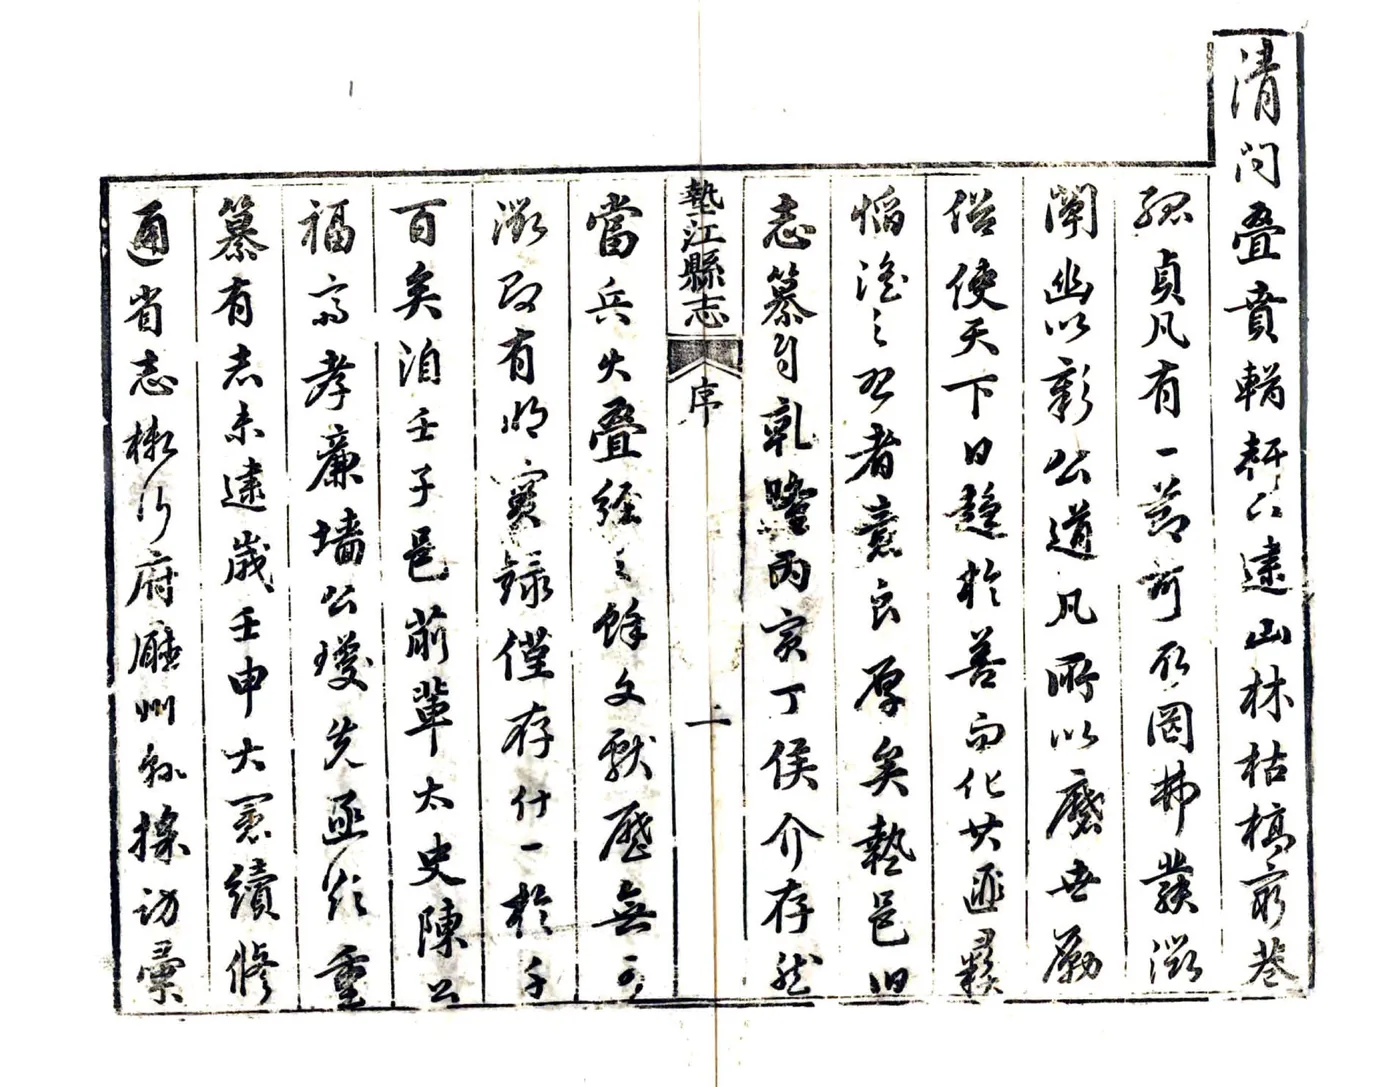 清問疊賁輶軒下逮山林枯槁窮巷
孤貞凡有一節可取罔弗發微
闡幽以彰公道凡所以磨世勵
俗使天下日趨於善而化其匪彝
慆淫之習者意良厚矣墊邑旧
志纂自乾隆丙寅丁侯介存然
墊江縣志
序
二
當兵火疊經之餘文獻歷無可
徵即有明實錄僅存什一於千
百矣洎壬子邑前輩太史陳公
福齋孝廉墙公瓊先函欲重
纂有志未逮歲壬申大憲續修
通省志檄行府廳州縣採訪彙